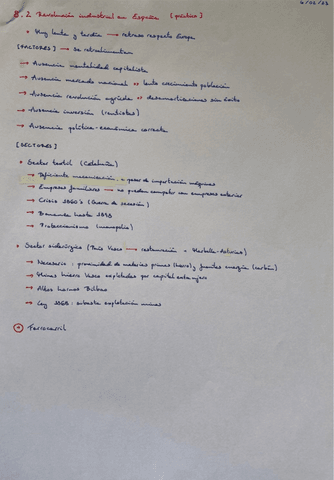 6/02/23
8.2 Revolución industrial en España [práctico]
• Muy lenta y tardía → retraso respecto Europa
[FACTORES] → se retroalimentan
→ Ausencia mentalidad capitalista
→ Ausencia mercado nacional ⇔ lento crecimiento población
→ Ausencia revolución agrícola ⇔ desamortizaciones sin éxito
→ Ausencia inversión (rentistas)
→ Ausencia política-económica correcta
[SECTORES]
• Sector textil (Cataluña)
→ Deficiente mecanización a pesar de importación máquinas
→ Empresas familiares → no pueden competir con empresas exterior
→ Crisis 1860's (Guerra de secesión)
→ Demanda hasta 1898
→ Proteccionismo (monopolio)
• Sector siderúrgico (País Vasco restauración Marbella-Asturias)
→ Necesario: proximidad de materias primas (hierro) y fuentes energía (carbón)
→ Minas hierro Vasco explotadas por capital extranjero
→ Altos hornos Bilbao
→ Ley 1868: subasta explotación minas
Ferrocarril